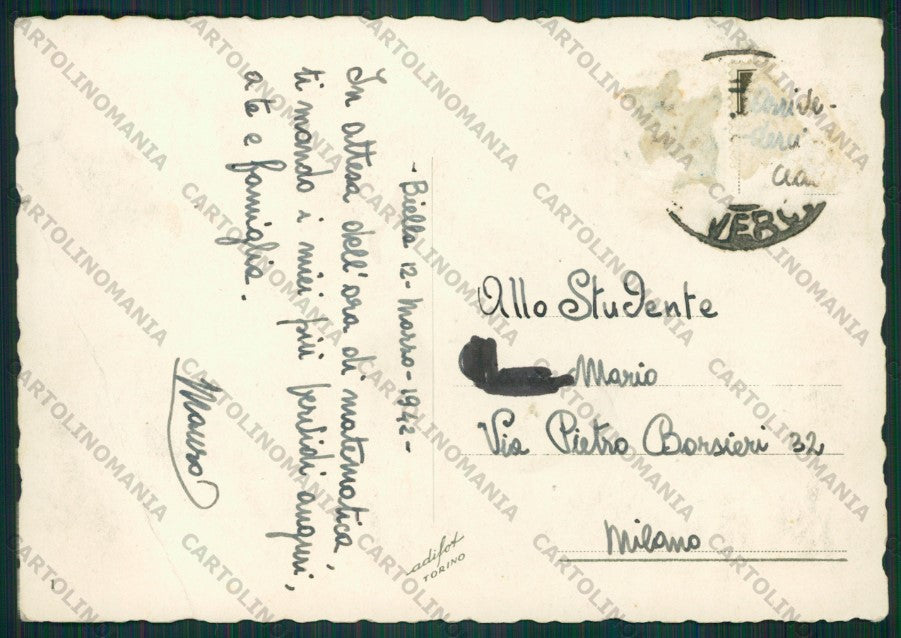 - Biella 12 - Marzo - 1942 -
In attesa dell'ora di matematica,
ti mando i miei più fervidi auguri,
a te e famiglia.
Mauro
Allo Studente
Mario
Via Pietro Borsieri 32
Milano
adifot
TORINO
CARTOLINOMANIA